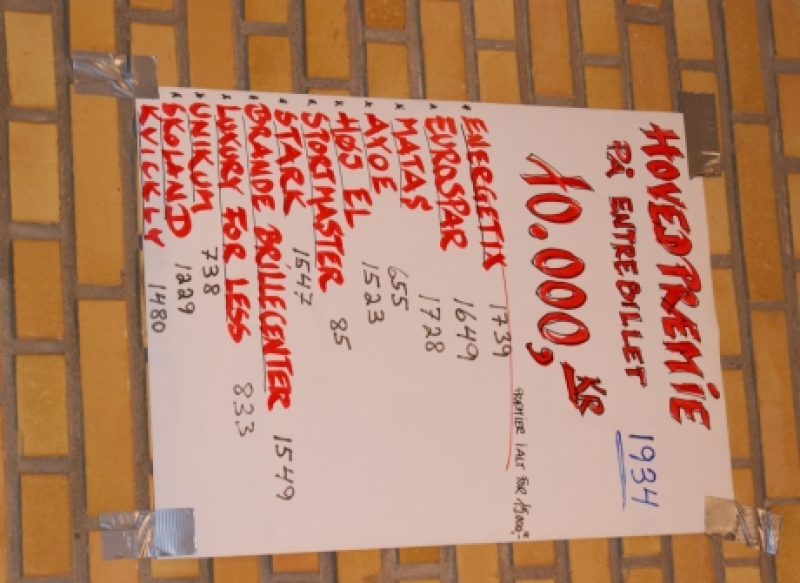 HOVEDPREMIE
PÅ ENTREBILLET 1934
10.000, KR
PRÆMIER I ALT FOR 15,000,-
* ENERGETIX 1739
* EUROSPAR 1649
* MATAS 1728
* AYOE 655
* HØJ EL 1523
* STORTMASTER 85
* STARK 1547
* BRANDE BRILLECENTER 1549
* LUXURY FOR LESS 833
* UNIKUM 738
* SKOLAND 1229
KVICKLY 1480